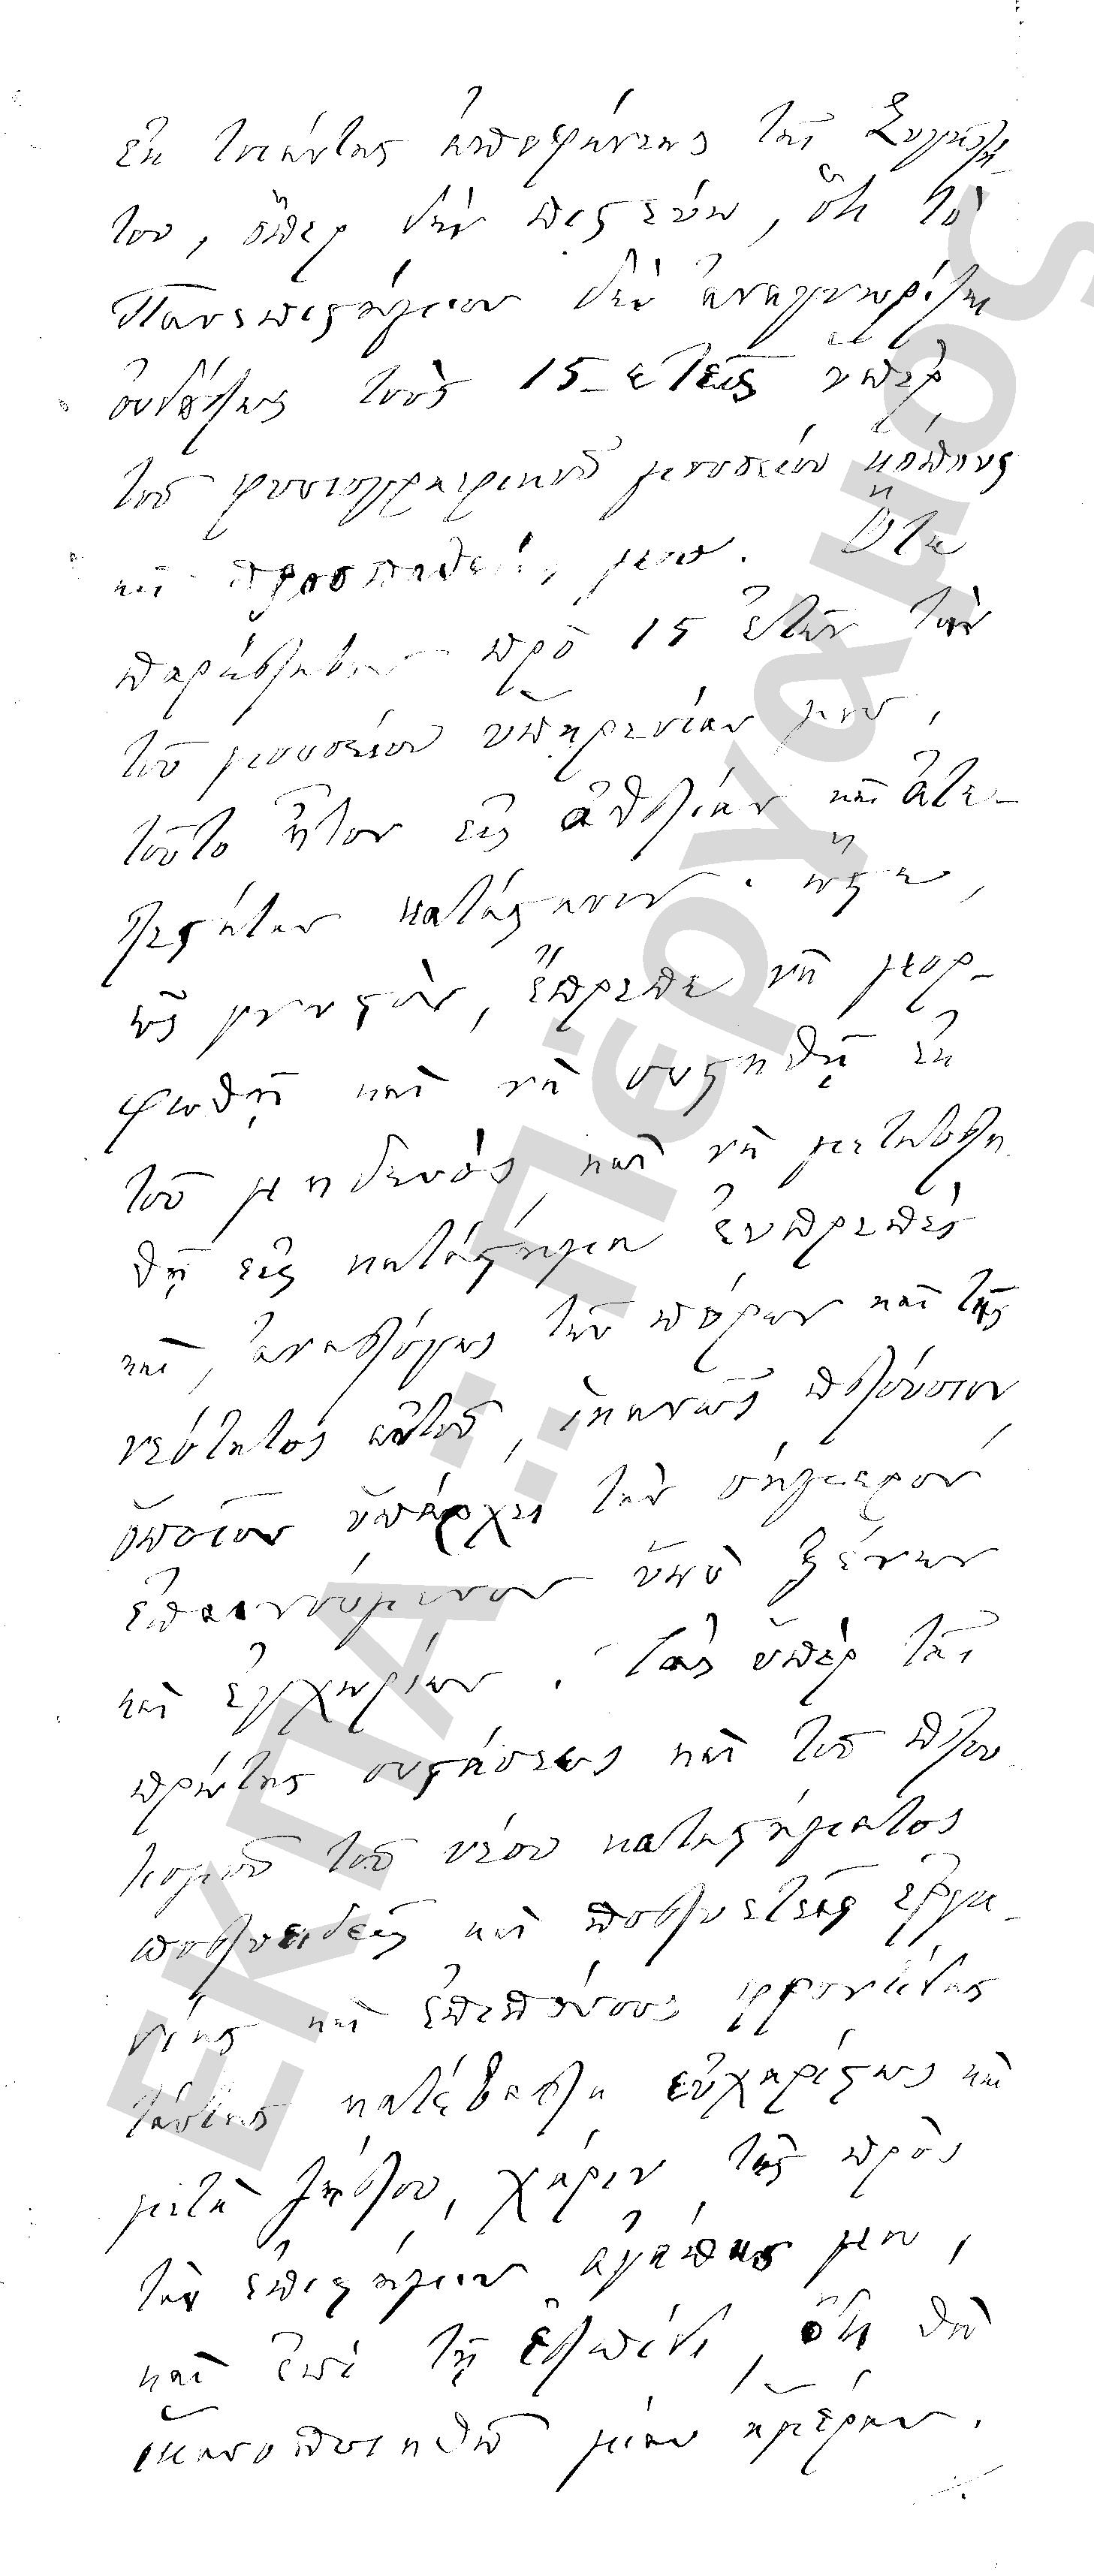 ἐκ τοιαύτης ἀποφάνσεως τῆς Συγκλή-
του, ὅπερ δὲν πιστεύω, ὅτι τὸ
Πανεπιστήμιον δὲν ἀναγνωρίζει
οὐδόλως τοὺς 15-ετεῖς ὑπὲρ
τοῦ φυσιογραφικοῦ μουσείου κόπους
καὶ προσπαθείας μου. Ὅτε
παρέλαβον πρὸ 15 ἐτῶν τὴν
τοῦ μουσείου ὑπηρεσίαν μου,
τοῦτο ἦτον εἰς ἀθλίαν καὶ ἀτε-
λεστάτην κατάστασιν· ὥστε,
ὡς γνωστὸν, ἔπρεπε νὰ μορ-
φωθῇ καὶ νὰ συστηθῇ ἐκ
τοῦ μηδενὸς καὶ νὰ μεταβλη
θῇ εἰς κατάστημα εὐπρεπὲς
καὶ, ἀναλόγως τῶν πόρων καὶ τῆς
νεότητος αὐτοῦ, ἱκανῶς πλούσιον,
ὁποῖον ὑπάρχει τὴν σήμερον
ἐπαινούμενον ὑπὸ ξένων
καὶ ἐγχωρίων. Τὰς ὑπὲρ τῆς
πρώτης συστάσεως καὶ τοῦ πλου
τισμοῦ τοῦ νέου καταστήματος
πολυειδεῖς καὶ πολυετεῖς ἐργα-
σίας καὶ ἐπιπόνους φροντίδας
ταύτας κατέβαλα εὐχαρίστως καὶ
μετὰ ζήλου, χάριν τῆς πρὸς
τὴν ἐπιστήμην ἀγάπης μου,
καὶ ἐπὶ τῇ ἐλπίδι, ὅτι θὰ
ἱκανοποιηθῶ μίαν ἡμέραν.
ΕΚΠΑ: Πέργαμος